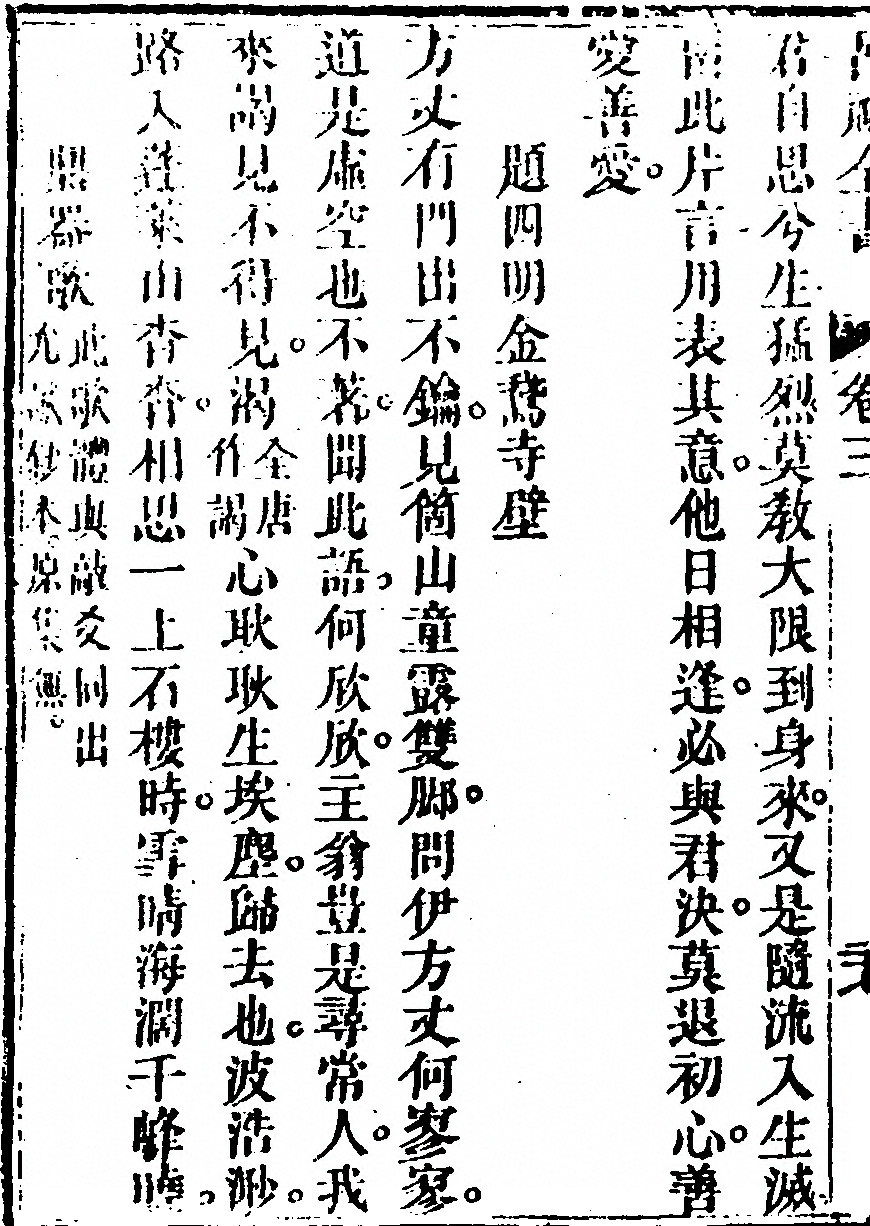 呂祖全書 卷三
君自思兮生猛烈莫教大限到身來又是隨流入生滅
留此片言用表其意他日相逢必與君決莫退初心善
愛善愛
題四明金鵞寺壁
方丈有門出不鑰見箇山童露雙脚問伊方丈何寥寂
道是虛空也不著聞此語何欣欣主翁豈是尋常人我
來謁見不得見渴全唐作謁心耿耿生埃塵歸去也波浩渺
路入蓬萊山杳杳相思一上石樓時雪晴海濶千峰曉
鼎器歌此歌體與敲爻同出尤 鈔本原集無